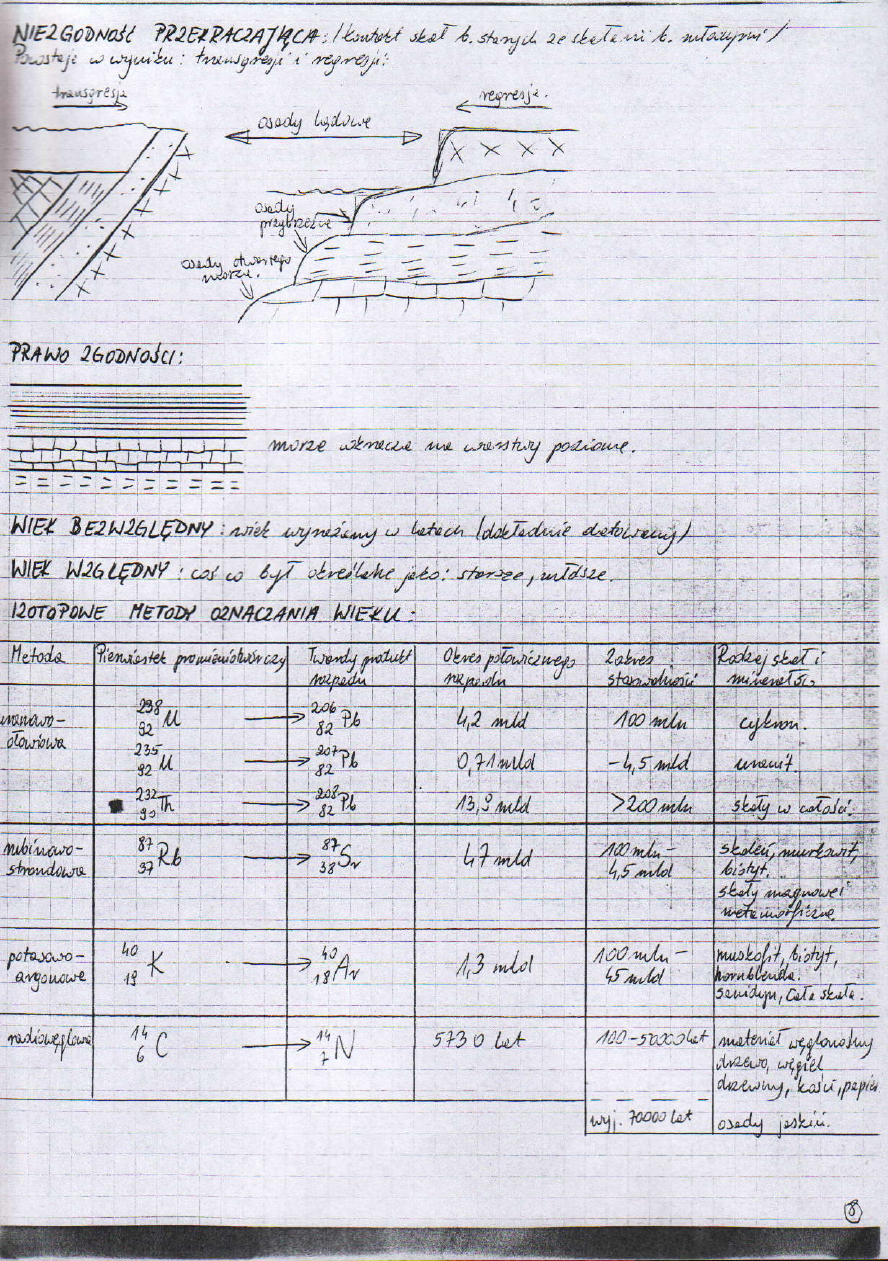 NIEZGODNOŚĆ PRZEKRACZAJĄCA: /kontakt skał b. starych ze skałami b. młodymi/
Powstaje w wyniku: transgresji i regresji:
transgresja
regresja.
osady lądowe
osady
przybrzeżne
osady otwartego
morza.
PRAWO ZGODNOŚCI:
morze wkracza na warstwy poziome.
WIEK BEZWZGLĘDNY: wiek wyrażany w latach (dokładnie datowany)
WIEK WZGLĘDNY: coś co był określane jako: starsze, młdsze.
IZOTOPOWE METODY OZNACZANIA WIEKU:
Metoda Pierwiastek promieniotwórczy Twardy produkt rozpadu Okres połowicznego rozpadu Zakres stosowalności Rodzaj skał i minerałów
uranowo-ołowiowa 238 92 U → 206 82 Pb 4,2 mld 100 mln cyrkon.
235 92 U → 207 82 Pb 0,71 mld -4,5 mld uranit.
232 90 Th → 208 82 Pb 13,9 mld >200 mln skały w całości.
rubinowo-strondowa 87 37 Rb → 87 38 Sr 47 mld 100 mln - 4,5 mld skaleń, murkowit, biotyt. skały magmowe i metamorficzne.
potasowo-argonowe 40 19 K → 40 18 Ar 1,3 mld 100 mln - 45 mld muskofit, biotyt, hornblenda. sanidyn, cała skała.
radiowęglowa 14 6 C → 14 7 N 5730 lat 100-50000 lat materiał węglonośny drzewo, węgiel drzewny, kości, papier
wyj. 70000 lat osady jaskiń.
8